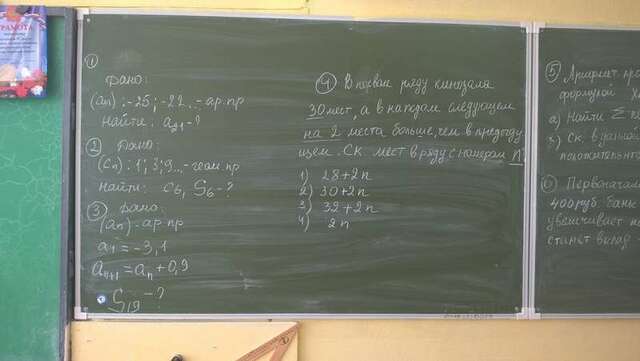 ГРАМОТА
①
Дано:
(an): -25; -22... - ар.пр
Найти: a21-?
② Дано:
(cn): 1; 3; 9... - геом.пр
Найти: c6, S6-?
③ Дано:
(an) - ар.пр
a1 = -3,1
an+1 = an + 0,9
S19 - ?
④ В первом ряду кинозала
30 мест, а в каждом следующем
на 2 места больше, чем в предыду
щем. Ск мест в ряду с номером n
1) 28+2n
2) 30+2n
3) 32+2n
4) 2n
⑤ Арифмет про
формулой
а) Найти Σ
Ск. в данной
положительн
Первонача
400 руб бан
увеличивает
станет вклад